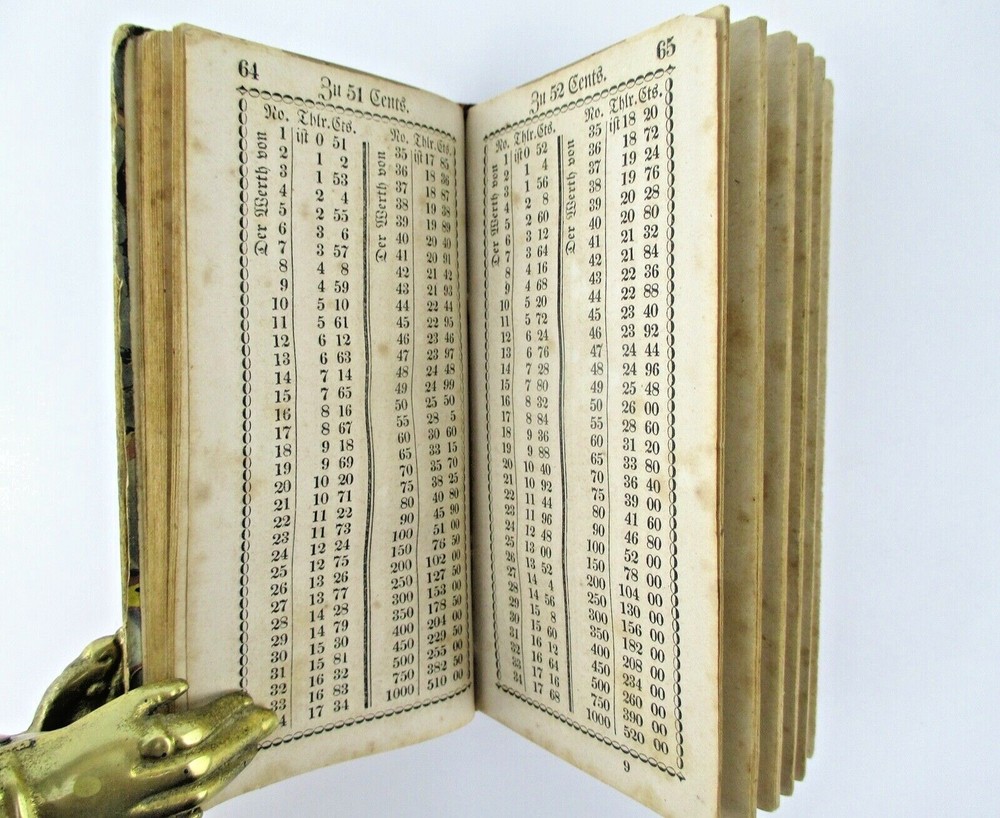 64
Zu 51 Cents.
No. Thlr. Cts.
Der Werth von
1 ist 0 51
2 1 2
3 1 53
4 2 4
5 2 55
6 3 6
7 3 57
8 4 8
9 4 59
10 5 10
11 5 61
12 6 12
13 6 63
14 7 14
15 7 65
16 8 16
17 8 67
18 9 18
19 9 69
20 10 20
21 10 71
22 11 22
23 11 73
24 12 24
25 12 75
26 13 26
27 13 77
28 14 28
29 14 79
30 15 30
31 15 81
32 16 32
33 16 83
4 17 34
No. Thlr. Cts.
Der Werth von
35 ist 17 85
36 18 36
37 18 87
38 19 38
39 19 89
40 20 40
41 20 91
42 21 42
43 21 93
44 22 44
45 22 95
46 23 46
47 23 97
48 24 48
49 24 99
50 25 50
55 28 5
60 30 60
65 33 15
70 35 70
75 38 25
80 40 80
90 45 90
100 51 00
150 76 50
200 102 00
250 127 50
300 153 00
350 178 50
400 204 00
450 229 50
500 255 00
750 382 50
1000 510 00
65
Zu 52 Cents.
No. Thlr. Cts.
Der Werth von
1 ist 0 52
2 1 4
3 1 56
4 2 8
5 2 60
6 3 12
7 3 64
8 4 16
9 4 68
10 5 20
11 5 72
12 6 24
13 6 76
14 7 28
15 7 80
16 8 32
17 8 84
18 9 36
19 9 88
20 10 40
21 10 92
22 11 44
23 11 96
24 12 48
25 13 00
26 13 52
27 14 4
28 14 56
29 15 8
30 15 60
31 16 12
32 16 64
33 17 16
34 17 68
No. Thlr. Cts.
Der Werth von
35 ist 18 20
36 18 72
37 19 24
38 19 76
39 20 28
40 20 80
41 21 32
42 21 84
43 22 36
44 22 88
45 23 40
46 23 92
47 24 44
48 24 96
49 25 48
50 26 00
55 28 60
60 31 20
65 33 80
70 36 40
75 39 00
80 41 60
90 46 80
100 52 00
150 78 00
200 104 00
250 130 00
300 156 00
350 182 00
400 208 00
450 234 00
500 260 00
750 390 00
1000 520 00
9